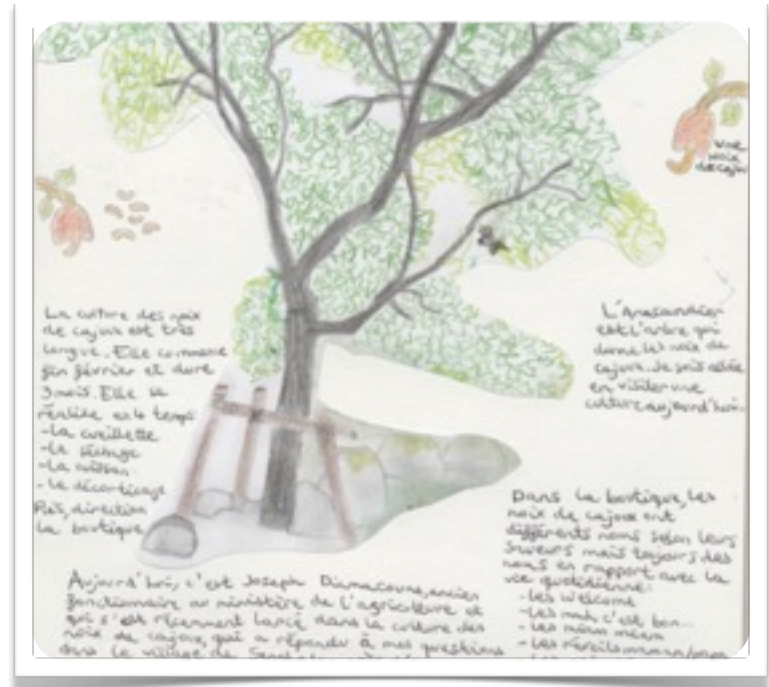 une
noix
de cajou
La culture des noix
de cajoux est très
longue. Elle commence
fin février et dure
3 mois. Elle se
réalise en 4 temps
-La cueillette
-Le séchage
-La cuisson
-Le décorticage
Puis, direction
la boutique
L'Anacardier
est l'arbre qui
donne les noix de
cajoux. Je suis allée
en visiter une
culture aujourd'hui.
Dans la boutique, les
noix de cajoux ont
différents noms selon leurs
saveurs mais toujours des
noms en rapport avec la
vie quotidienne:
-Les welcome
-Les mah c'est bon...
-Les miam miam
-Les réveils maman/papa
Aujourd'hui, c'est Joseph Diamacoune, ancien
fonctionnaire au ministère de l'agriculture et
qui s'est récemment lancé dans la culture des
noix de cajoux, qui a répondu à mes questions
dans le village de